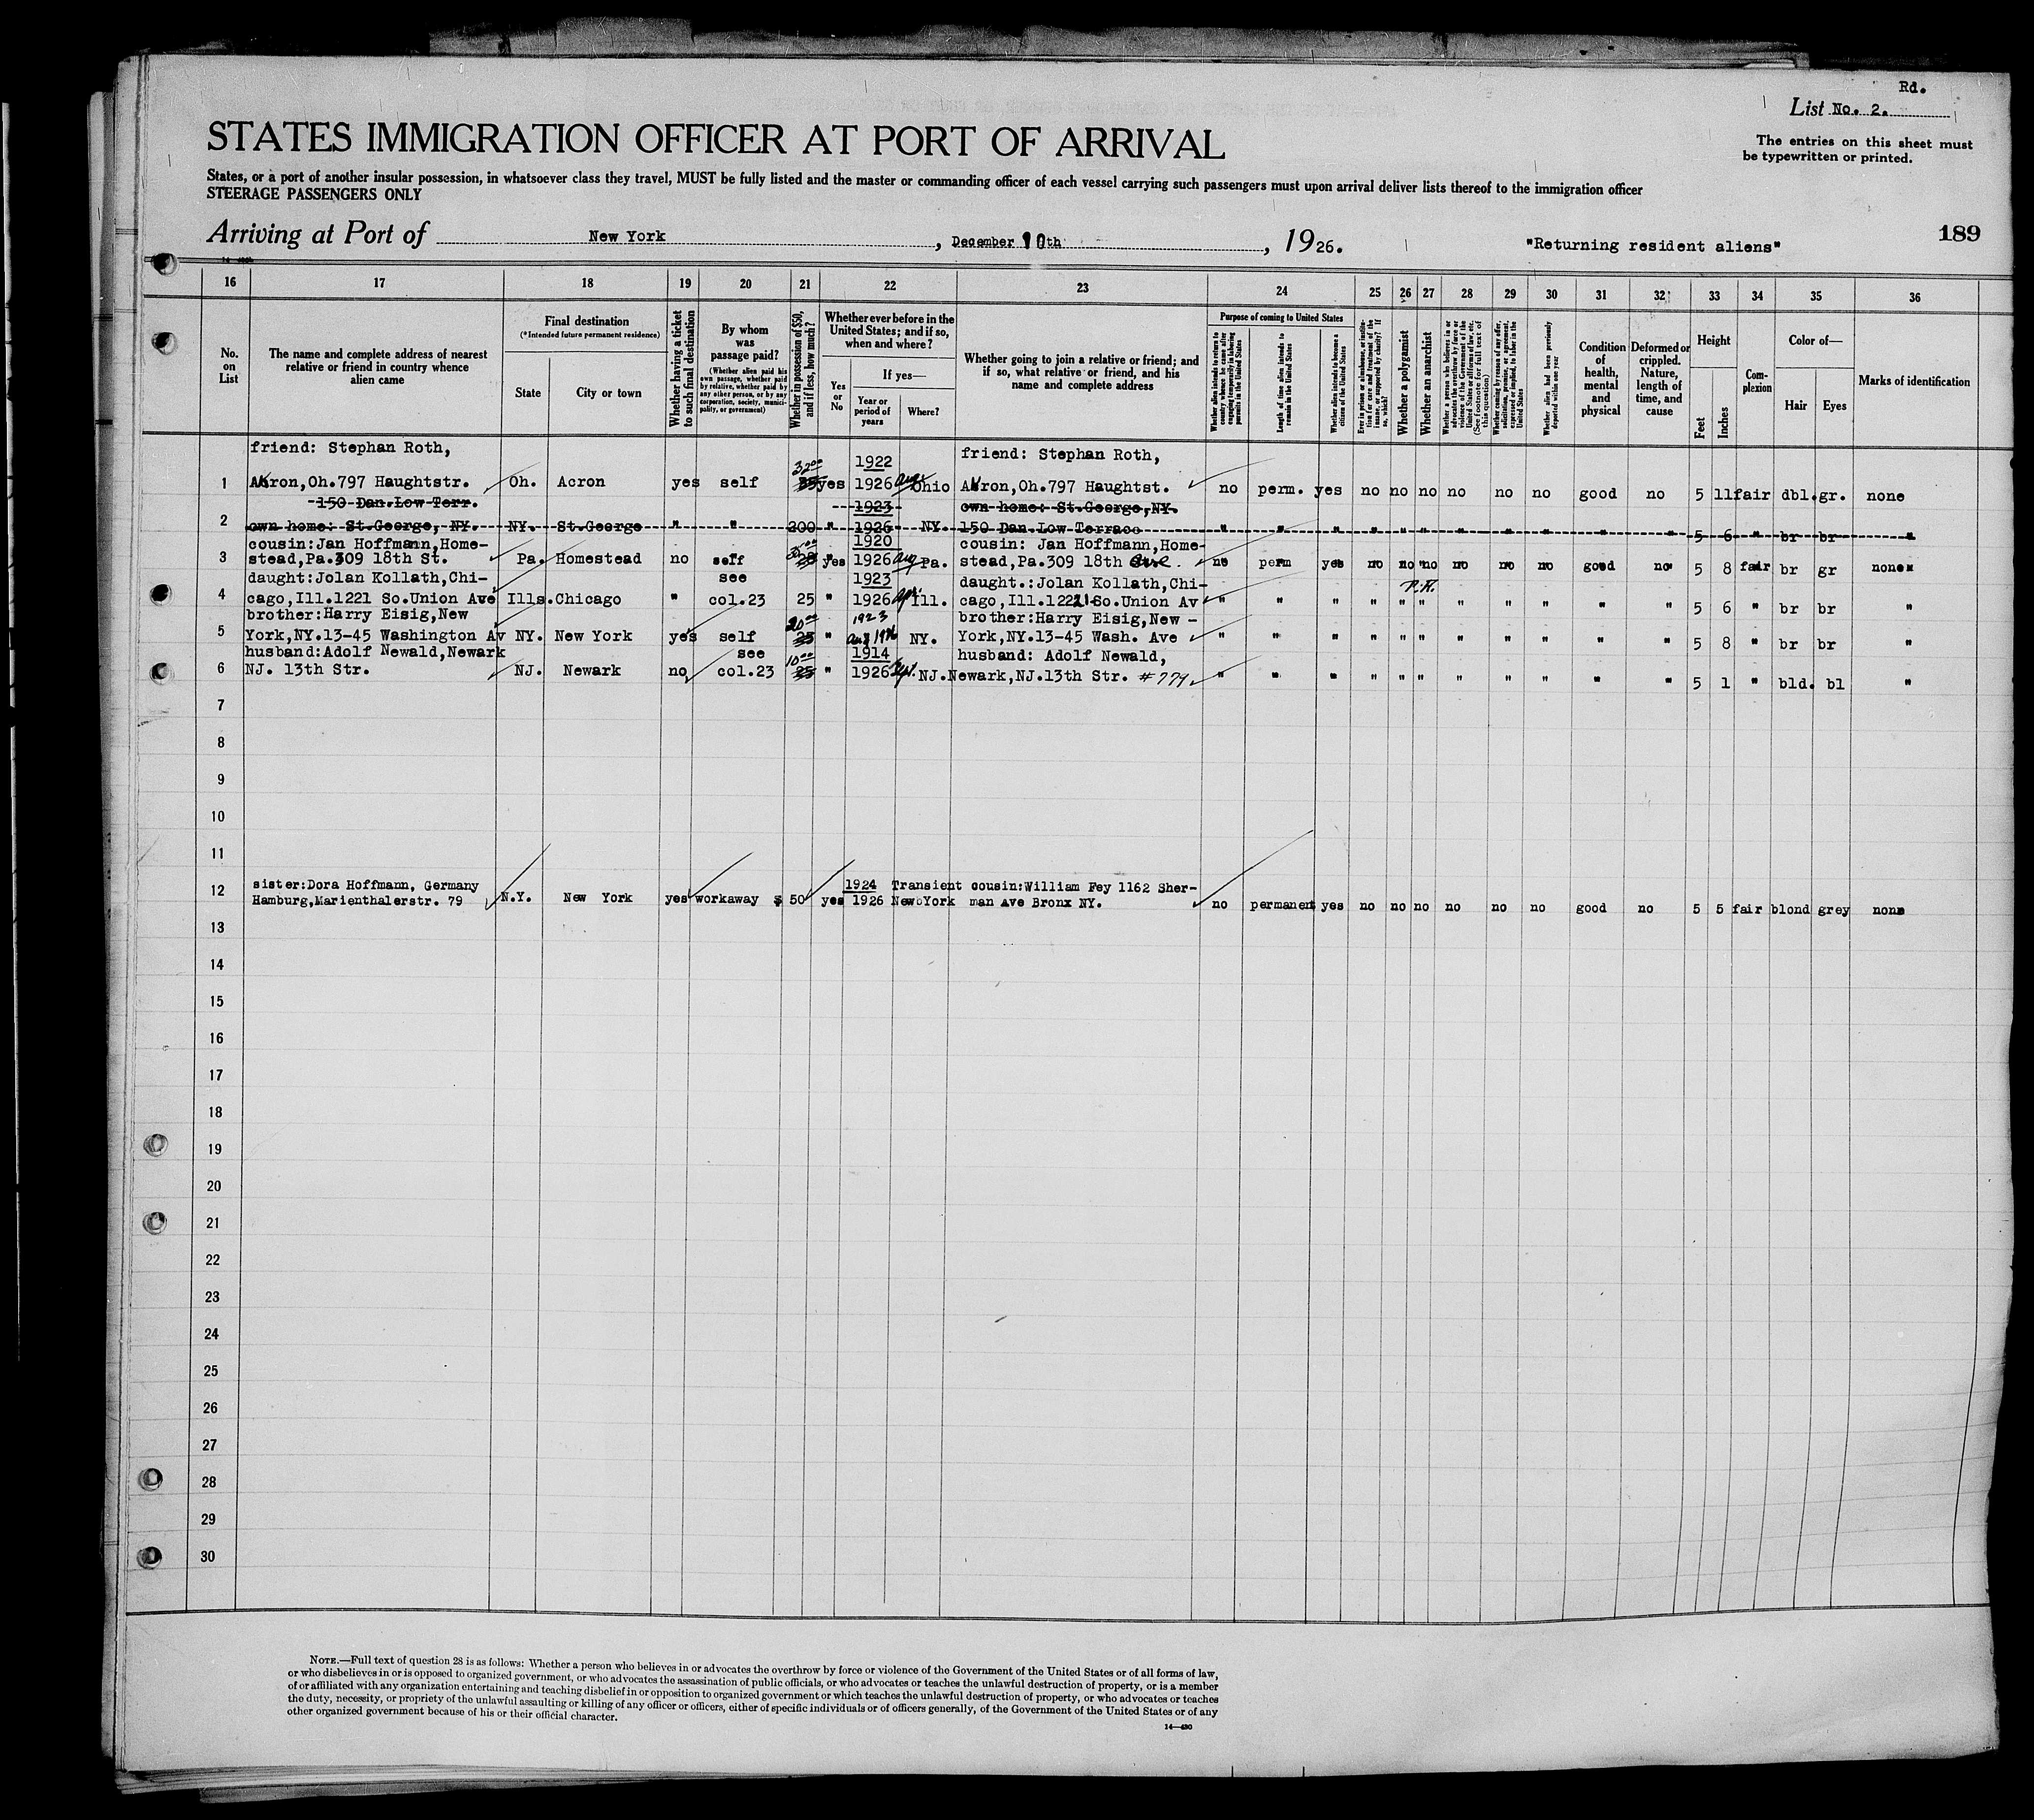 Rd.
List No. 2.
STATES IMMIGRATION OFFICER AT PORT OF ARRIVAL
The entries on this sheet must
be typewritten or printed.
States, or a port of another insular possession, in whatsoever class they travel, MUST be fully listed and the master or commanding officer of each vessel carrying such passengers must upon arrival deliver lists thereof to the immigration officer
STEERAGE PASSENGERS ONLY
Arriving at Port of New York, December 10th, 1926.
"Returning resident aliens"
189
16 17 18 19 20 21 22 23 24 25 26 27 28 29 30 31 32 33 34 35 36
No. on List
The name and complete address of nearest relative or friend in country whence alien came
Final destination
(*Intended future permanent residence)
State
City or town
Whether having a ticket to such final destination
By whom was passage paid?
(Whether alien paid his own passage, whether paid by relative, whether paid by any other person, or by any corporation, society, municipality, or government)
Whether in possession of $50, and if less, how much?
Whether ever before in the United States; and if so, when and where?
Yes or No
If yes—
Year or period of years
Where?
Whether going to join a relative or friend; and if so, what relative or friend, and his name and complete address
Purpose of coming to United States
Whether alien intends to return to country whence he came after engaging temporarily in laboring pursuits in the United States
Length of time alien intends to remain in the United States
Whether alien intends to become a citizen of the United States
Ever in prison or almshouse, or institution for care and treatment of the insane, or supported by charity? If so, which?
Whether a polygamist
Whether an anarchist
(See footnote for full text of this question)
Whether coming by reason of any offer, solicitation, promise, or agreement, expressed or implied, to labor in the United States
Whether alien had been previously deported within one year
Condition of health, mental and physical
Deformed or crippled. Nature, length of time, and cause
Height
Feet
Inches
Complexion
Color of—
Hair
Eyes
Marks of identification
friend: Stephan Roth, 32.00 1922 friend: Stephan Roth,
1 Akron,Oh.797 Haughtstr. Oh. Acron yes self 25 yes 1926 Aug Ohio Akron,Oh.797 Haughtst. no perm. yes no no no no no no good no 5 11 fair dbl. gr. none
150 Dan.Low Terr. 1923 own home: St.George,NY.
2 own home: St.George, NY. NY. St.George " " 200 " 1926 NY. 150 Dan.Low Terrace " " " " " " " " " " " 5 6 " br br "
cousin:Jan Hoffmann,Home- 1920 cousin: Jan Hoffmann,Home-
3 stead,Pa.309 18th St. Pa. Homestead no self yes 1926 Aug Pa. stead,Pa.309 18th Ave. no perm yes no no no no no no good no 5 8 fair br gr none
daught:Jolan Kollath,Chi- see 1923 daught.:Jolan Kollath,Chi-
4 cago,Ill.1221 So.Union Ave Ills. Chicago " col.23 25 " 1926 Apr. Ill. cago,Ill.1221 So.Union Av " " " " " " " " " " " 5 6 " br br "
brother:Harry Eisig,New 20.00 1923 brother:Harry Eisig,New -
5 York,NY.13-45 Washington Av NY. New York yes self 25 " Aug 1926 NY. York,NY.13-45 Wash. Ave " " " " " " " " " " " 5 8 " br br "
husband:Adolf Newald,Newark see 10.00 1914 husband: Adolf Newald,
6 NJ. 13th Str. NJ. Newark no col.23 25 " 1926 NJ. Newark,NJ.13th Str. #779 " " " " " " " " " " " 5 1 " bld. bl "
7
8
9
10
11
sister:Dora Hoffmann, Germany 1924 Transient cousin:William Fey 1162 Sher-
12 Hamburg,Marienthalerstr. 79 N.Y. New York yes workaway $ 50 yes 1926 New York man Ave Bronx NY. no permanent yes no no no no no no good no 5 5 fair blond grey none
13
14
15
16
17
18
19
20
21
22
23
24
25
26
27
28
29
30
NOTE.—Full text of question 28 is as follows: Whether a person who believes in or advocates the overthrow by force or violence of the Government of the United States or of all forms of law,
or who disbelieves in or is opposed to organized government, or who advocates the assassination of public officials, or who advocates or teaches the unlawful destruction of property, or is a member
of or affiliated with any organization entertaining and teaching disbelief in or opposition to organized government or which teaches the unlawful destruction of property, or who advocates or teaches
the duty, necessity, or propriety of the unlawful assaulting or killing of any officer or officers, either of specific individuals or of officers generally, of the Government of the United States or of any
other organized government because of his or their official character.
14—430